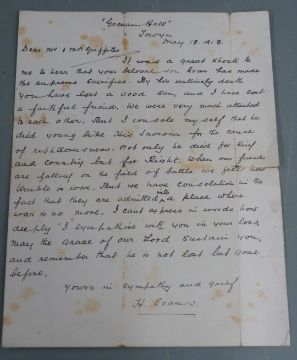 "Hall"
Towyn
May 18. 1918.
Dear Mr & Mrs Griffiths
It was a great shock to
me to hear that your beloved son Evan has made
the supreme sacrifice. By his untimely death
you have lost a good son, and I have lost
a faithful friend. We were very much attached
to each other. But I console my self that he
died young like His Saviour for the cause
of righteousness. Not only he died for King
and country but for Right. When our friends
are falling on the field of battle we feel how
terrible is war. But we have consolation in the
fact that they are admitted into a place where
war is no more. I cant express in words how
deeply I sympathise with you in your loss,
May the Grace of our Lord sustain you,
and remember that he is not lost but gone
before.
Yours in sympathy and grief
H. Evans.